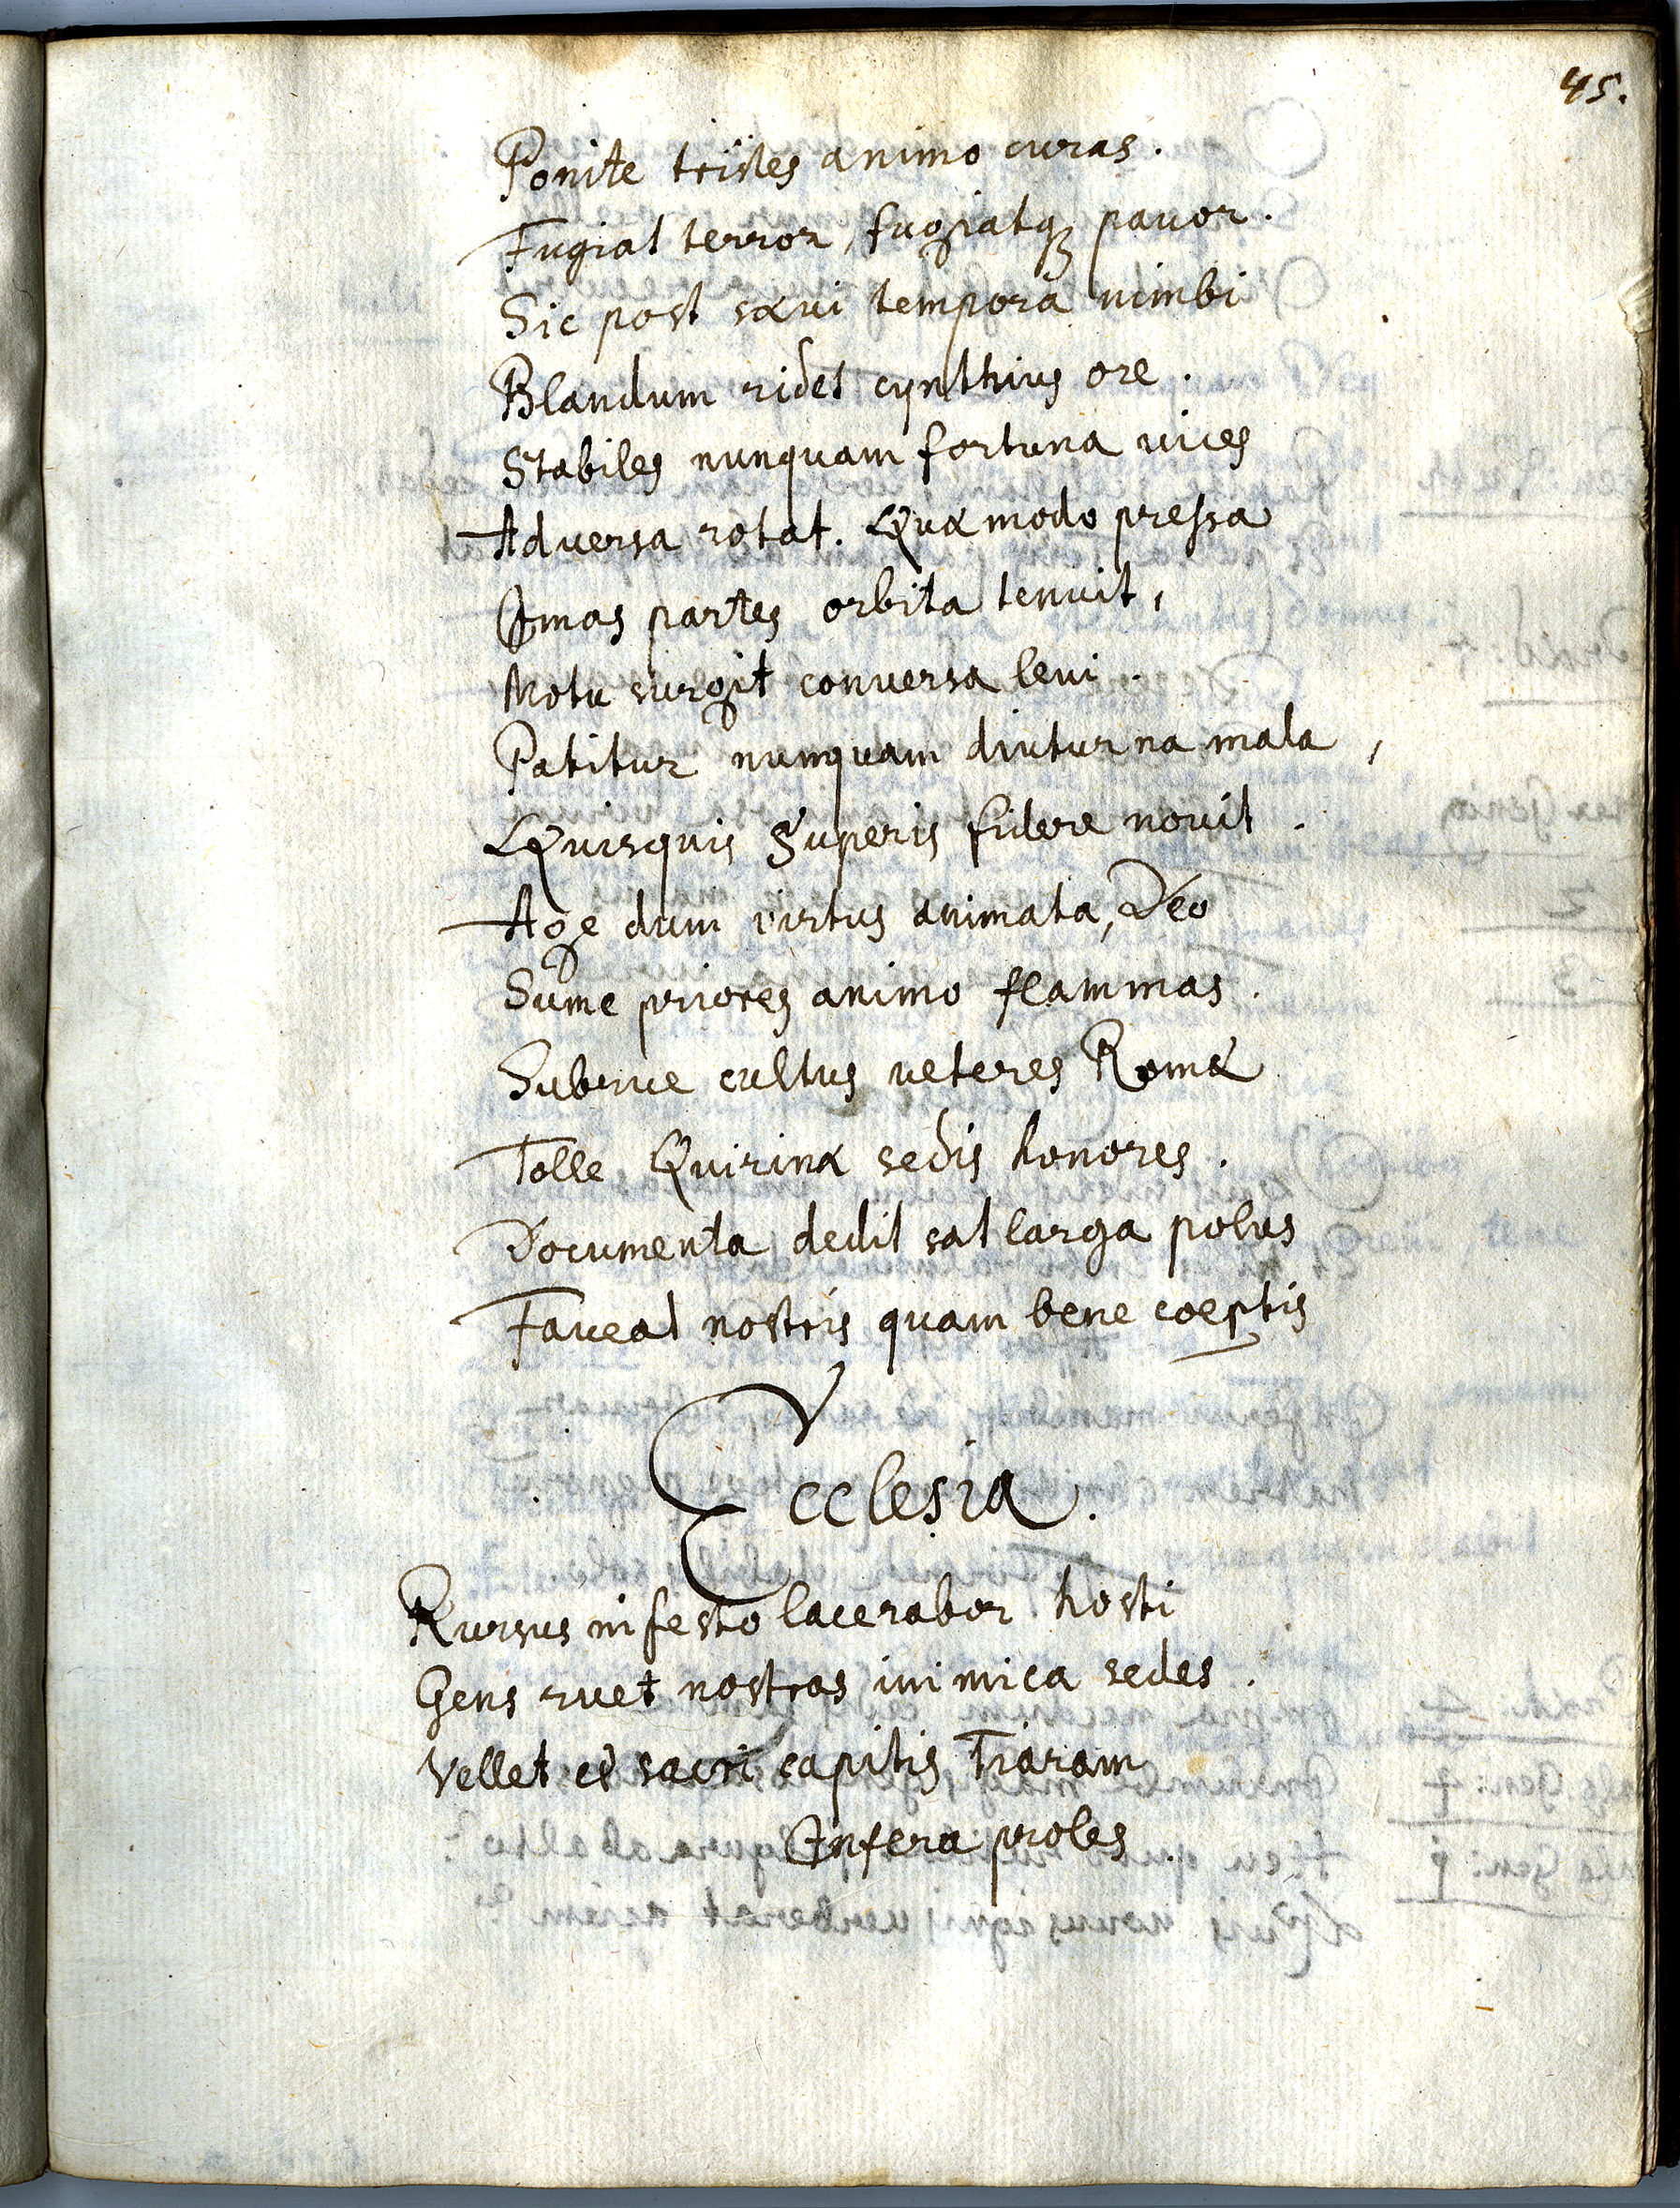 45.
Ponite tristes animo curas.
Fugiat terror, fugiatq; pauor.
Sic post sæui tempora nimbi
Blandum ridet cynthius ore.
Stabiles nunquam fortuna vices
Adversa rotat. Quæ modo pressa
Imas partes orbita tenuit,
Motu surgit conversa leui.
Patitur nunquam diuturna mala,
Quisquis Superis fidere novit.
Age dum virtus animata, Deo
Sume priores animo flammas.
Subrue cultus veteres Romæ
Tolle Quirinæ sedis honores.
Documenta dedit sat larga polus
Faveat nostris quam bene coeptis
Ecclesia.
Rursus infesto lacerabor hosti
Gens ruet nostras inimica sedes.
Vellet et sacri capitis Tiaram
Infera proles.